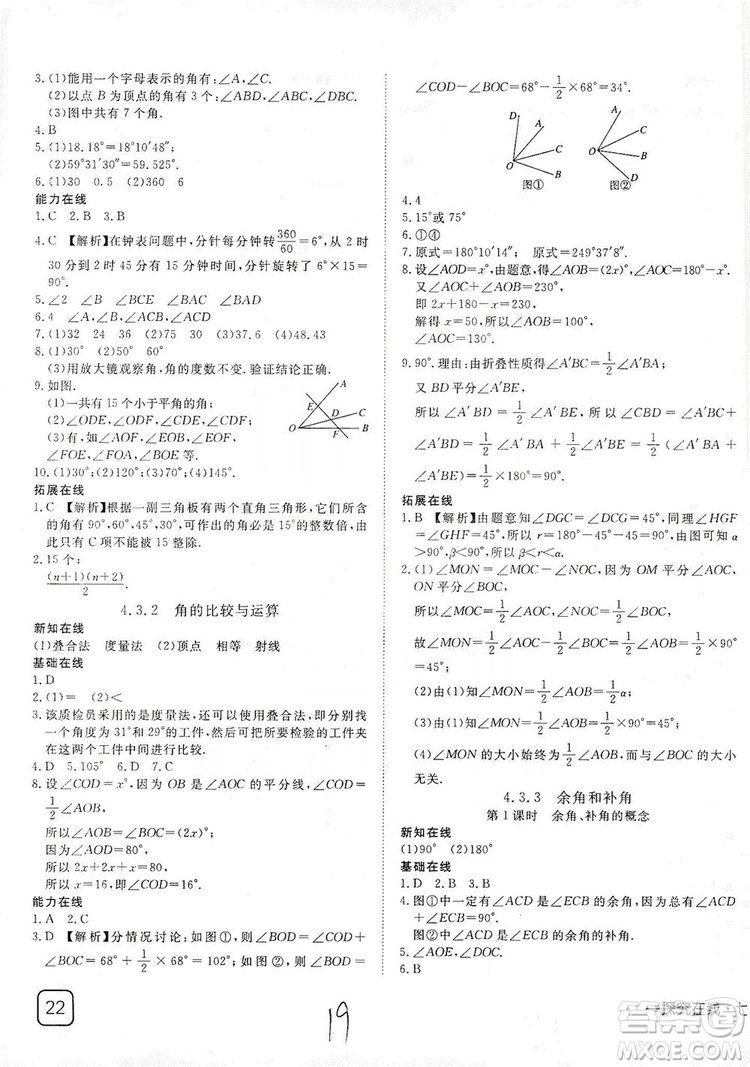 3. (1)能用一个字母表示的角有：∠A，∠C.
(2)以点 B 为顶点的角有 3 个：∠ABD，∠ABC，∠DBC.
(3)图中共有 7 个角.
4. B
5. (1)18.18°＝18°10′48″.
(2)59°31′30″＝59.525°.
6. (1)30　0.5　(2)360　6
能力在线
1. C　2. B　3. B
4. C　【解析】在钟表问题中，分针每分钟转 360/60＝6°，从 2 时
30 分到 2 时 45 分有 15 分钟时间，分针旋转了 6°×15＝
90°.
5. ∠2　∠B　∠BCE　∠BAC　∠BAD
6. 4　∠A，∠B，∠ACB，∠ACD
7. (1)32　24　36　(2)10　15　36　(4)48.43
8. (1)30°　30°　(2)30°
(3)用放大镜观察角，角的度数不变. 验证结论正确.
9. 如图.
(1)一共有 15 个小于平角的角.
(2)∠ODE，∠ODF，∠ODC 等.
(3)∠EOD，∠AOF，∠EOF，
∠FOE，∠FOA，∠BOE 等.
A
E
D
C
O
F
B
10. (1)30°；(2)120°；(3)20°.
拓展在线
1. C　【解析】根据一副三角板有两个直角三角形，它们所含
的角为 90°，60°，45°，30°，可作出的角必是 15°的整数倍，由
此只有 C 项不能被 15 整除.
2. 15 个；
(n＋1)(n＋2)/2.
4.3.2　角的比较与运算
新知在线
(1)叠合法　度量法　(2)顶点　相等　射线
基础在线
1. D
2. (1)＝　(2)＜
3. 该质检员采用的是度量法，还可以使用叠合法，即分别找
一个角度为 31°和 29°的工件，然后把所要检验的工件夹
在两个工件中间进行比较.
4. D　5. 105°　6. D　7. C
8. 设∠COD＝x°，因为 OB 是∠AOC 的平分线，∠COD＝
1/2∠AOB，
所以∠AOB＝∠BOC＝(2x)°.
因为∠AOD＝80°，
所以 2x＋2x＋x＝80，
所以 x＝16，即∠COD＝16°.
能力在线
1. A　2. C
3. D　【解析】分情况讨论：如图①，则∠BOD＝∠COD＋
∠BOC＝68°＋1/2×68°＝102°；如图②，则∠BOD＝
22
19
∠COD－∠BOC＝68°－1/2×68°＝34°.
D
A
C
O
B
图①
A
B
C
O
D
图②
4. 4
5. 15°或 75°
6. ①④
7. 原式＝180°10′14″；　原式＝249°37′53″.
8. 设∠AOD＝x°，由题意，得∠AOB＝(2x)°.
又∠AOC＋∠AOB＝230°，
即 2x＋180－x＝230.
解得 x＝50，所以∠AOB＝100°，
∠AOC＝130°.
9. 90°. 理由：由折叠性质，得∠A′BC＝
又 BD 平分∠A′BE，
所以∠A′BD＝1/2∠A′BE，所以∠CBD＝∠A′BC＋
∠A′BD＝
＝90°.
拓展在线
1. B　【解析】由题意知∠DGC＝∠DCG＝45°，同理∠HGF
＝∠GHF＝45°，所以 r＝180°－45°－45°＝90°，由图可知 α
＞90°，β＜90°，所以 β＜r＜α.
2. (1)∠MON＝∠MOC－∠NOC. 因为 OM 平分∠AOC，
ON 平分∠BOC，
所以∠MOC＝1/2∠AOC，∠NOC＝1/2∠BOC，
故∠MON＝
＝45°；
(2)由(1)可知∠MON＝1/2∠AOB＝1/2α；
(3)由(1)可知∠MON＝1/2∠AOB＝1/2×90°＝45°；
(4)∠MON 的大小始终为∠AOB 的一半，而与∠BOC
无关.
4.3.3　余角和补角
第 1 课时　余角、补角的概念
新知在线
(1)90°　(2)180°
基础在线
1. D　2. B　3. B
4. 图①中一定有∠ACD 是∠ECB 的余角，因为总有∠ACD＋
∠ECB＝90°.
图②中∠ACD 是∠ECB 的余角的补角.
5. ∠AOE，∠DOC.
6. B
探究在线·七